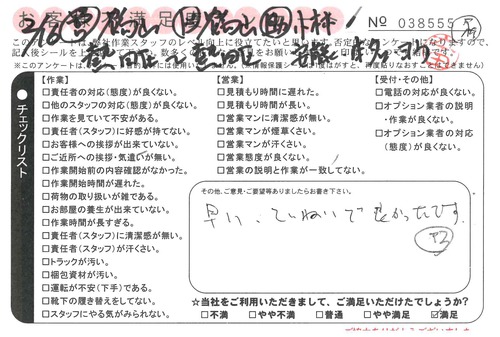 お客様 満足度
No 038555
は、弊社作業スタッフのレベル向上に役立てたいと思います。否定的なアンケートになりますので、
チェックリスト
【作業】
□責任者の対応(態度)が良くない。
□他のスタッフの対応(態度)が良くない。
□作業を見ていて不安がある。
□責任者(スタッフ)に好感が持てない。
□お客様への挨拶が出来ていない。
□ご近所への挨拶・気遣いが無い。
□作業開始前の内容確認がなかった。
□作業開始時間が遅れた。
□荷物の取り扱いが雑である。
□お部屋の養生が出来ていない。
□作業時間が長すぎる。
□責任者(スタッフ)に清潔感が無い。
□責任者(スタッフ)が汗くさい。
□トラックが汚い。
□梱包資材が汚い。
□運転が不安(下手)である。
□靴下の履き替えをしてない。
□スタッフにやる気がみられない。
【営業】
□見積もり時間に遅れた。
□見積もり時間が長い。
□営業マンに清潔感が無い。
□営業マンが煙草くさい。
□営業マンが汗くさい。
□営業態度が良くない。
□営業の説明と作業が一致してない。
【受付・その他】
□電話の対応が良くない。
□オプション業者の説明
・作業が良くない。
□オプション業者の対応
(態度)が良くない。
その他、ご意見・ご要望等ありましたらお書き下さい。
早い、ていねいで良かったです。
☆当社をご利用いただきまして、ご満足いただけたでしょうか?
□不満 □やや不満 □普通 □やや満足 ☑満足